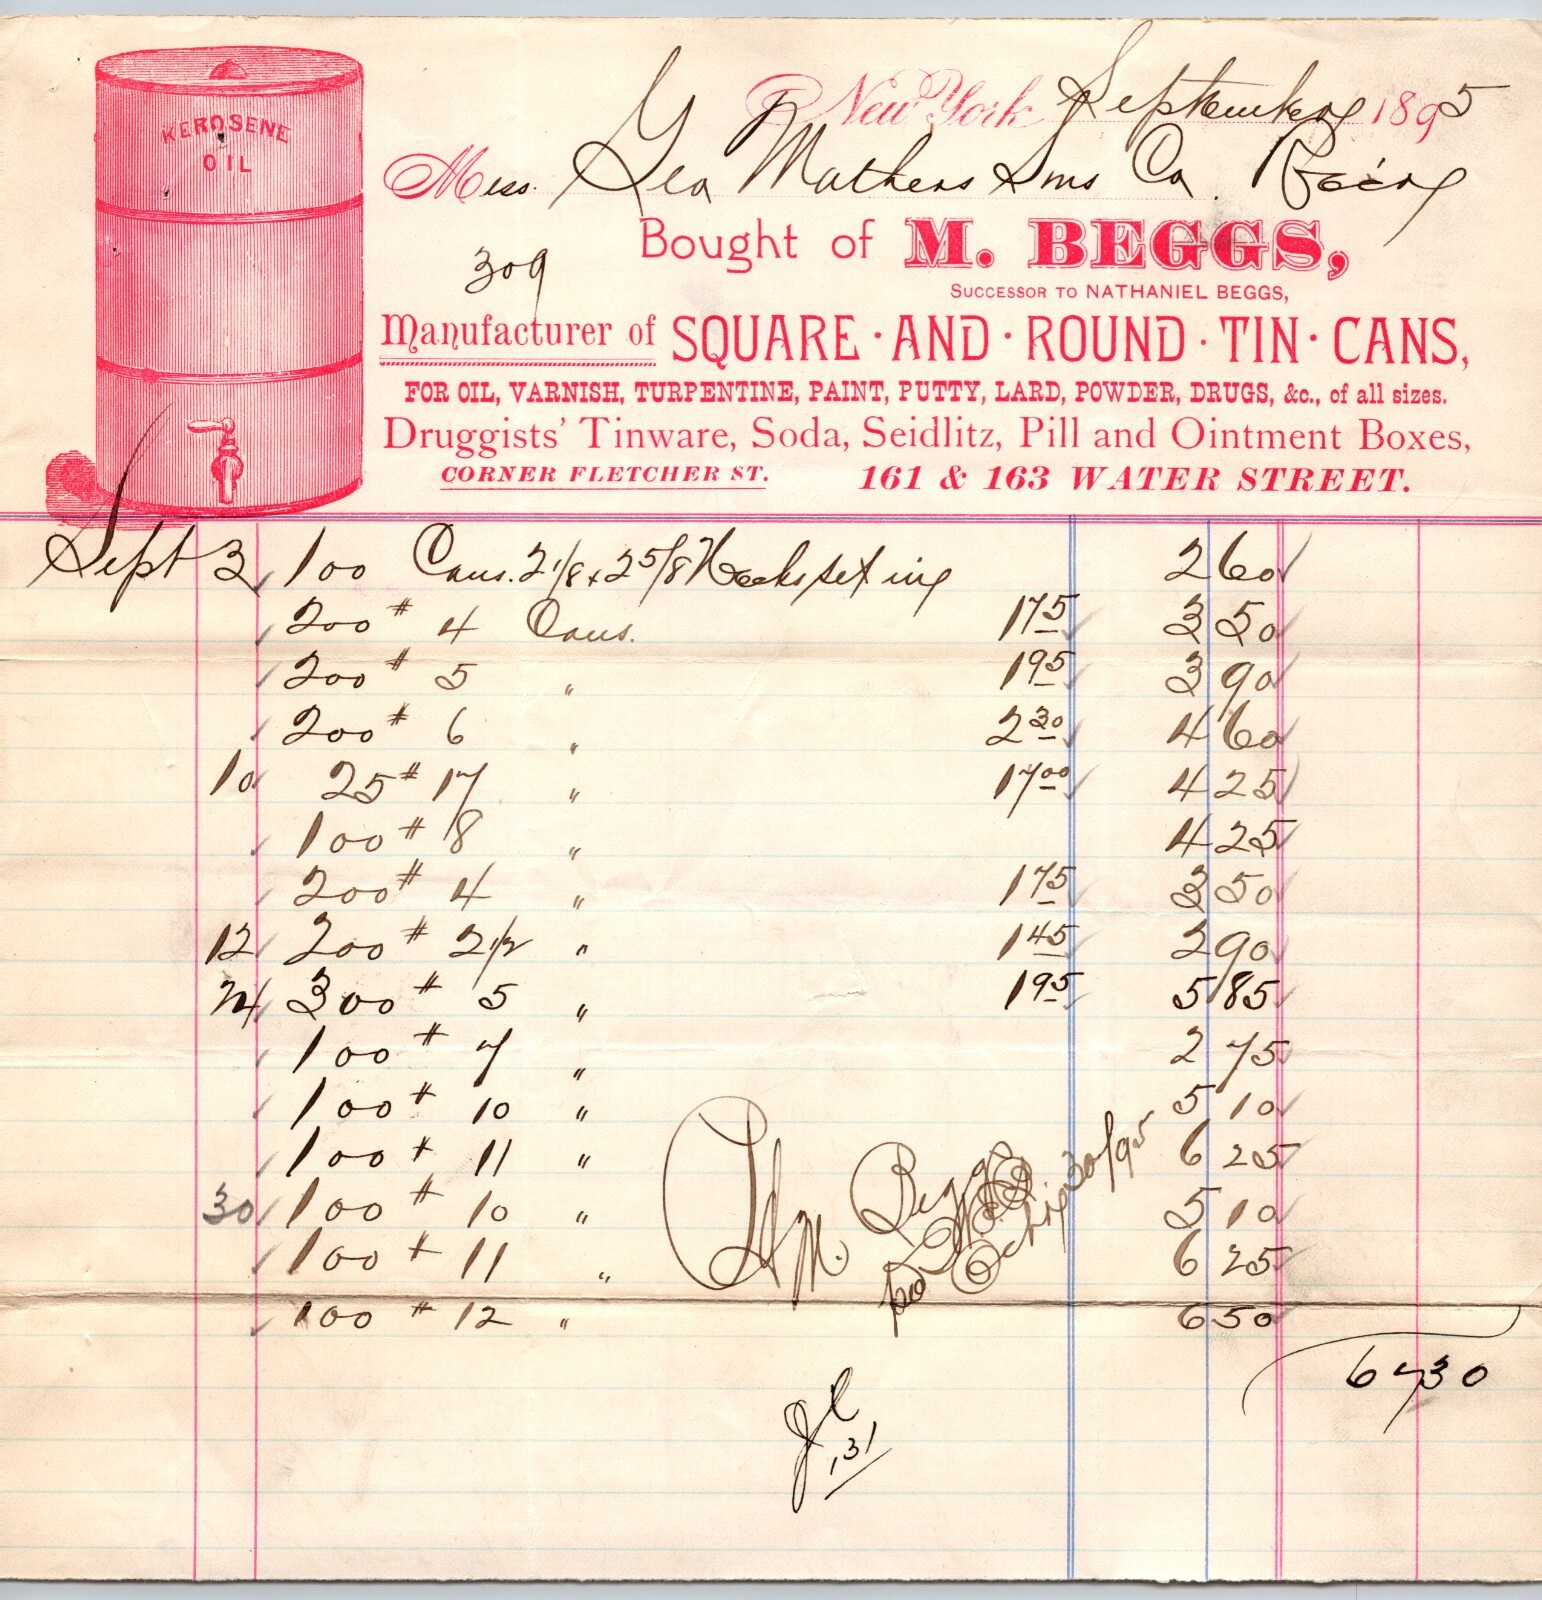 KEROSENE
OIL
New York September 1895
Mess. Geo Mathers Sons Co.
309
Bought of M. BEGGS,
SUCCESSOR TO NATHANIEL BEGGS,
Manufacturer of SQUARE · AND · ROUND · TIN · CANS,
FOR OIL, VARNISH, TURPENTINE, PAINT, PUTTY, LARD, POWDER, DRUGS, &c., of all sizes.
Druggists' Tinware, Soda, Seidlitz, Pill and Ointment Boxes,
CORNER FLETCHER ST. 161 & 163 WATER STREET.
Sept 3 100 Cans. 2 1/8 x 2 5/8 Necks set in 2 60
200 # 4 Cans. 1 75 3 50
200 # 5 " 1 95 3 90
200 # 6 " 2 30 4 60
10 25 # 17 " 17 00 4 25
100 # 8 " 4 25
200 # 4 " 1 75 3 50
12 200 # 2 1/2 " 1 45 2 90
24 300 # 5 " 1 95 5 85
100 # 7 " 2 75
100 # 10 " 5 10
100 # 11 " 6 25
30 100 # 10 " 5 10
100 # 11 " 6 25
100 # 12 " 6 50
67 30
M. Beggs
30/95
131